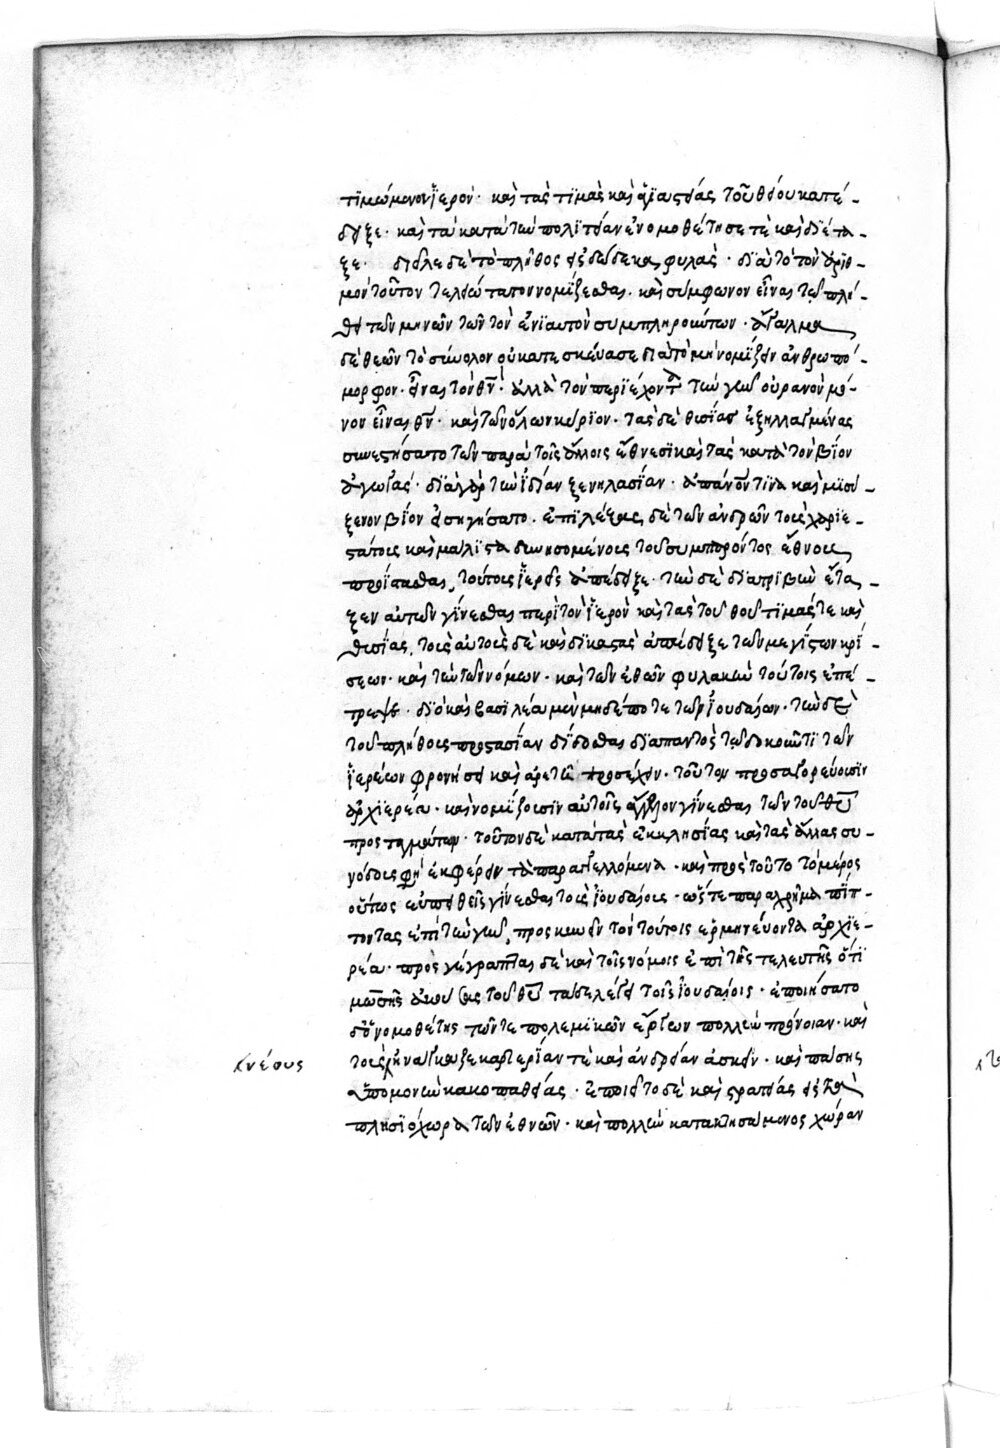 τϊμώμενον ἱερὸν· καὶ τὰς τϊμὰς καὶ ἁγϊαστείας τοῦ θείου κατέ-
δειξε· καὶ τὰ κατὰ τὴν πολϊτείαν ἐνομοθέτησέ τε καὶ διέτα-
ξε· διεῖλε δὲ τὸ πλῆθος εἰς δώδεκα φυλὰς· διὰ τὸ τὸν ἀριθ-
μὸν τοῦτον τελειώτατον νομίζεσθαι· καὶ σύμφωνον εἶναι τῷ πλή-
θει τῶν μηνῶν τῶν τὸν ἐνϊαυτὸν συμπληρούντων· ἄγαλμα
δὲ θεῶν τὸ σύνολον οὐ κατεσκεύασε διὰ τὸ μὴ νομίζειν ἀνθρωπό-
μορφον· εἶναι τὸν θν· ἀλλὰ τὸν περϊέχοντα τὴν γῆν οὐρανὸν μό-
νον εἶναι θν· καὶ τῶν ὅλων κύρϊον· τὰς δὲ θυσίας ἐξηλλαγμένας
συνεστήσατο τῶν παρὰ τοῖς ἄλλοις ἔθνεσϊ καὶ τὰς κατὰ τὸν βίον
ἀγωγάς· διὰ γὰρ τὴν ἰδίαν ξενηλασίαν· ἀπάνθρωπόν τινα καὶ μϊσό-
ξενον βίον εἰσηγήσατο· ἐπϊλέξας δὲ τῶν ἀνδρῶν τοὺς χαρϊε-
στάτους καὶ μάλϊστα δυνησομένους τοῦ συμπαρόντος ἔθνους
προΐστασθαι, τούτους ἱερεῖς ἀπέδειξε· τὴν δὲ διατρϊβὴν ἔτα-
ξεν αὐτῶν γίνεσθαι περὶ τὸν ἱερὸν καὶ τὰς τοῦ θεοῦ τϊμάς τε καὶ
θυσίας, τοὺς αὐτοὺς δὲ καὶ δικαστὰς ἀπέδειξε τῶν μεγίστων κρί-
σεων· καὶ τὴν τῶν νόμων· καὶ τῶν ἐθῶν φυλακὴν τούτοις ἐπέ-
τρεψε· διὸ καὶ βασιλέα μὲν μηδέποτε τῶν ἰουδαίων· τὴν δὲ
τοῦ πλήθους προστασίαν δίδοσθαι διαπαντὸς τῷ δοκοῦντι τῶν
ἱερέων φρονήσει καὶ ἀρετῇ προέχειν· τοῦτον προσαγορεύουσιν
ἀρχϊερέα· καὶ νομίζουσιν αὐτοῖς ἄγγελον γίνεσθαι τῶν τοῦ θυ
προσταγμάτων· τοῦτον δὲ κατὰ τὰς ἐκκλησίας καὶ τὰς ἄλλας συ-
νόδους φησὶ ἐκφέρειν τὰ παραγγελλόμενα· καὶ πρὸς τοῦτο τὸ μέρος
οὕτως εὐπειθεῖς γίνεσθαι τοὺς ἰουδαίους· ὥστε παραχρῆμα πίπ-
τοντας ἐπὶ τὴν γῆν, προσκυνεῖν τὸν τούτοις ἑρμηνεύοντα ἀρχϊε-
ρέα· προσγέγραπται δὲ καὶ τοῖς νόμοις ἐπὶ τῆς τελευτῆς ὅτϊ
μωσῆς ἀκούσας τοῦ θυ τάδε λέγει τοῖς ἰουδαίοις· ἐποιήσατο
δ' ὁ νομοθέτης τῶν τε πολεμϊκῶν ἔργων πολλὴν πρόνοιαν· καὶ
τοὺς ἠνάγκαζε καρτερίαν τε καὶ ἀνδρείαν ἀσκεῖν· καὶ πάσης
ὑπομονὴν κακοπαθείας· ἐποιεῖτο δὲ καὶ στρατείας εἰς τὰ
πλησϊόχωρα τῶν ἐθνῶν· καὶ πολλὴν κατακτησάμενος χώραν
νέους